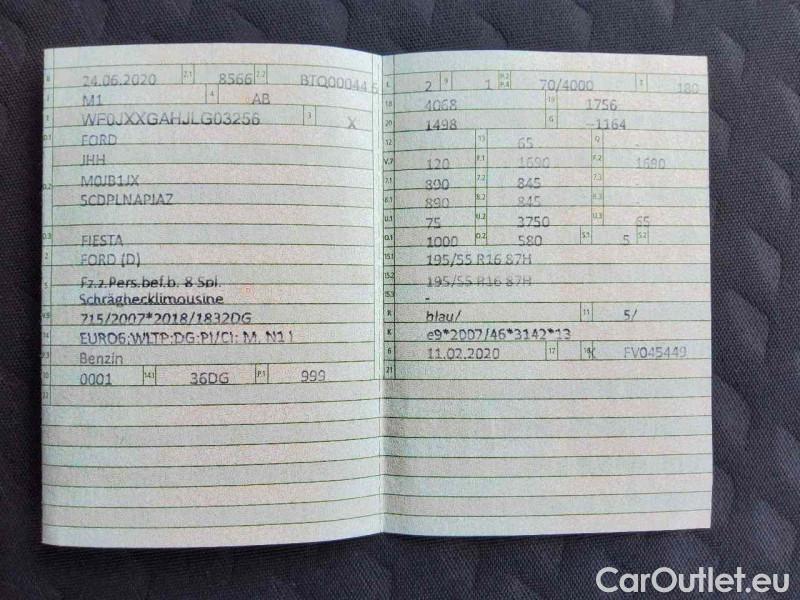 B 24.06.2020 2.1 8566 2.2 BTQ00044 5
J M1 4 AB
E WF0JXXGAHJLG03256 3 X
D.1 FORD
JHH
D.2 M0JB1JX
5CDPLNAPJAZ
D.3 FIESTA
2 FORD (D)
5 Fz.z.Pers.bef.b. 8 Spl.
Schräghecklimousine
V.9 715/2007*2018/1832DG
14 EURO6;WLTP;DG;PI/CI: M, N1 I
P.3 Benzin
10 0001 14.1 36DG P.1 999
22
L 2 9 1 P.2 P.4 70/4000 T 180
18 4068 19 1756
20 1498 G -1164
12 - 13 65 Q -
V.7 120 F.1 1690 F.2 1690
7.1 890 7.2 845 7.3 -
8.1 890 8.2 845 8.3 -
U.1 75 U.2 3750 U.3 65
O.1 1000 O.2 580 S.1 5 S.2
15.1 195/55 R16 87H
15.2 195/55 R16 87H
15.3 -
R blau/ 11 5/
K e9*2007/46*3142*13
6 11.02.2020 17 K 16 FV045449
21
CarOutlet.eu